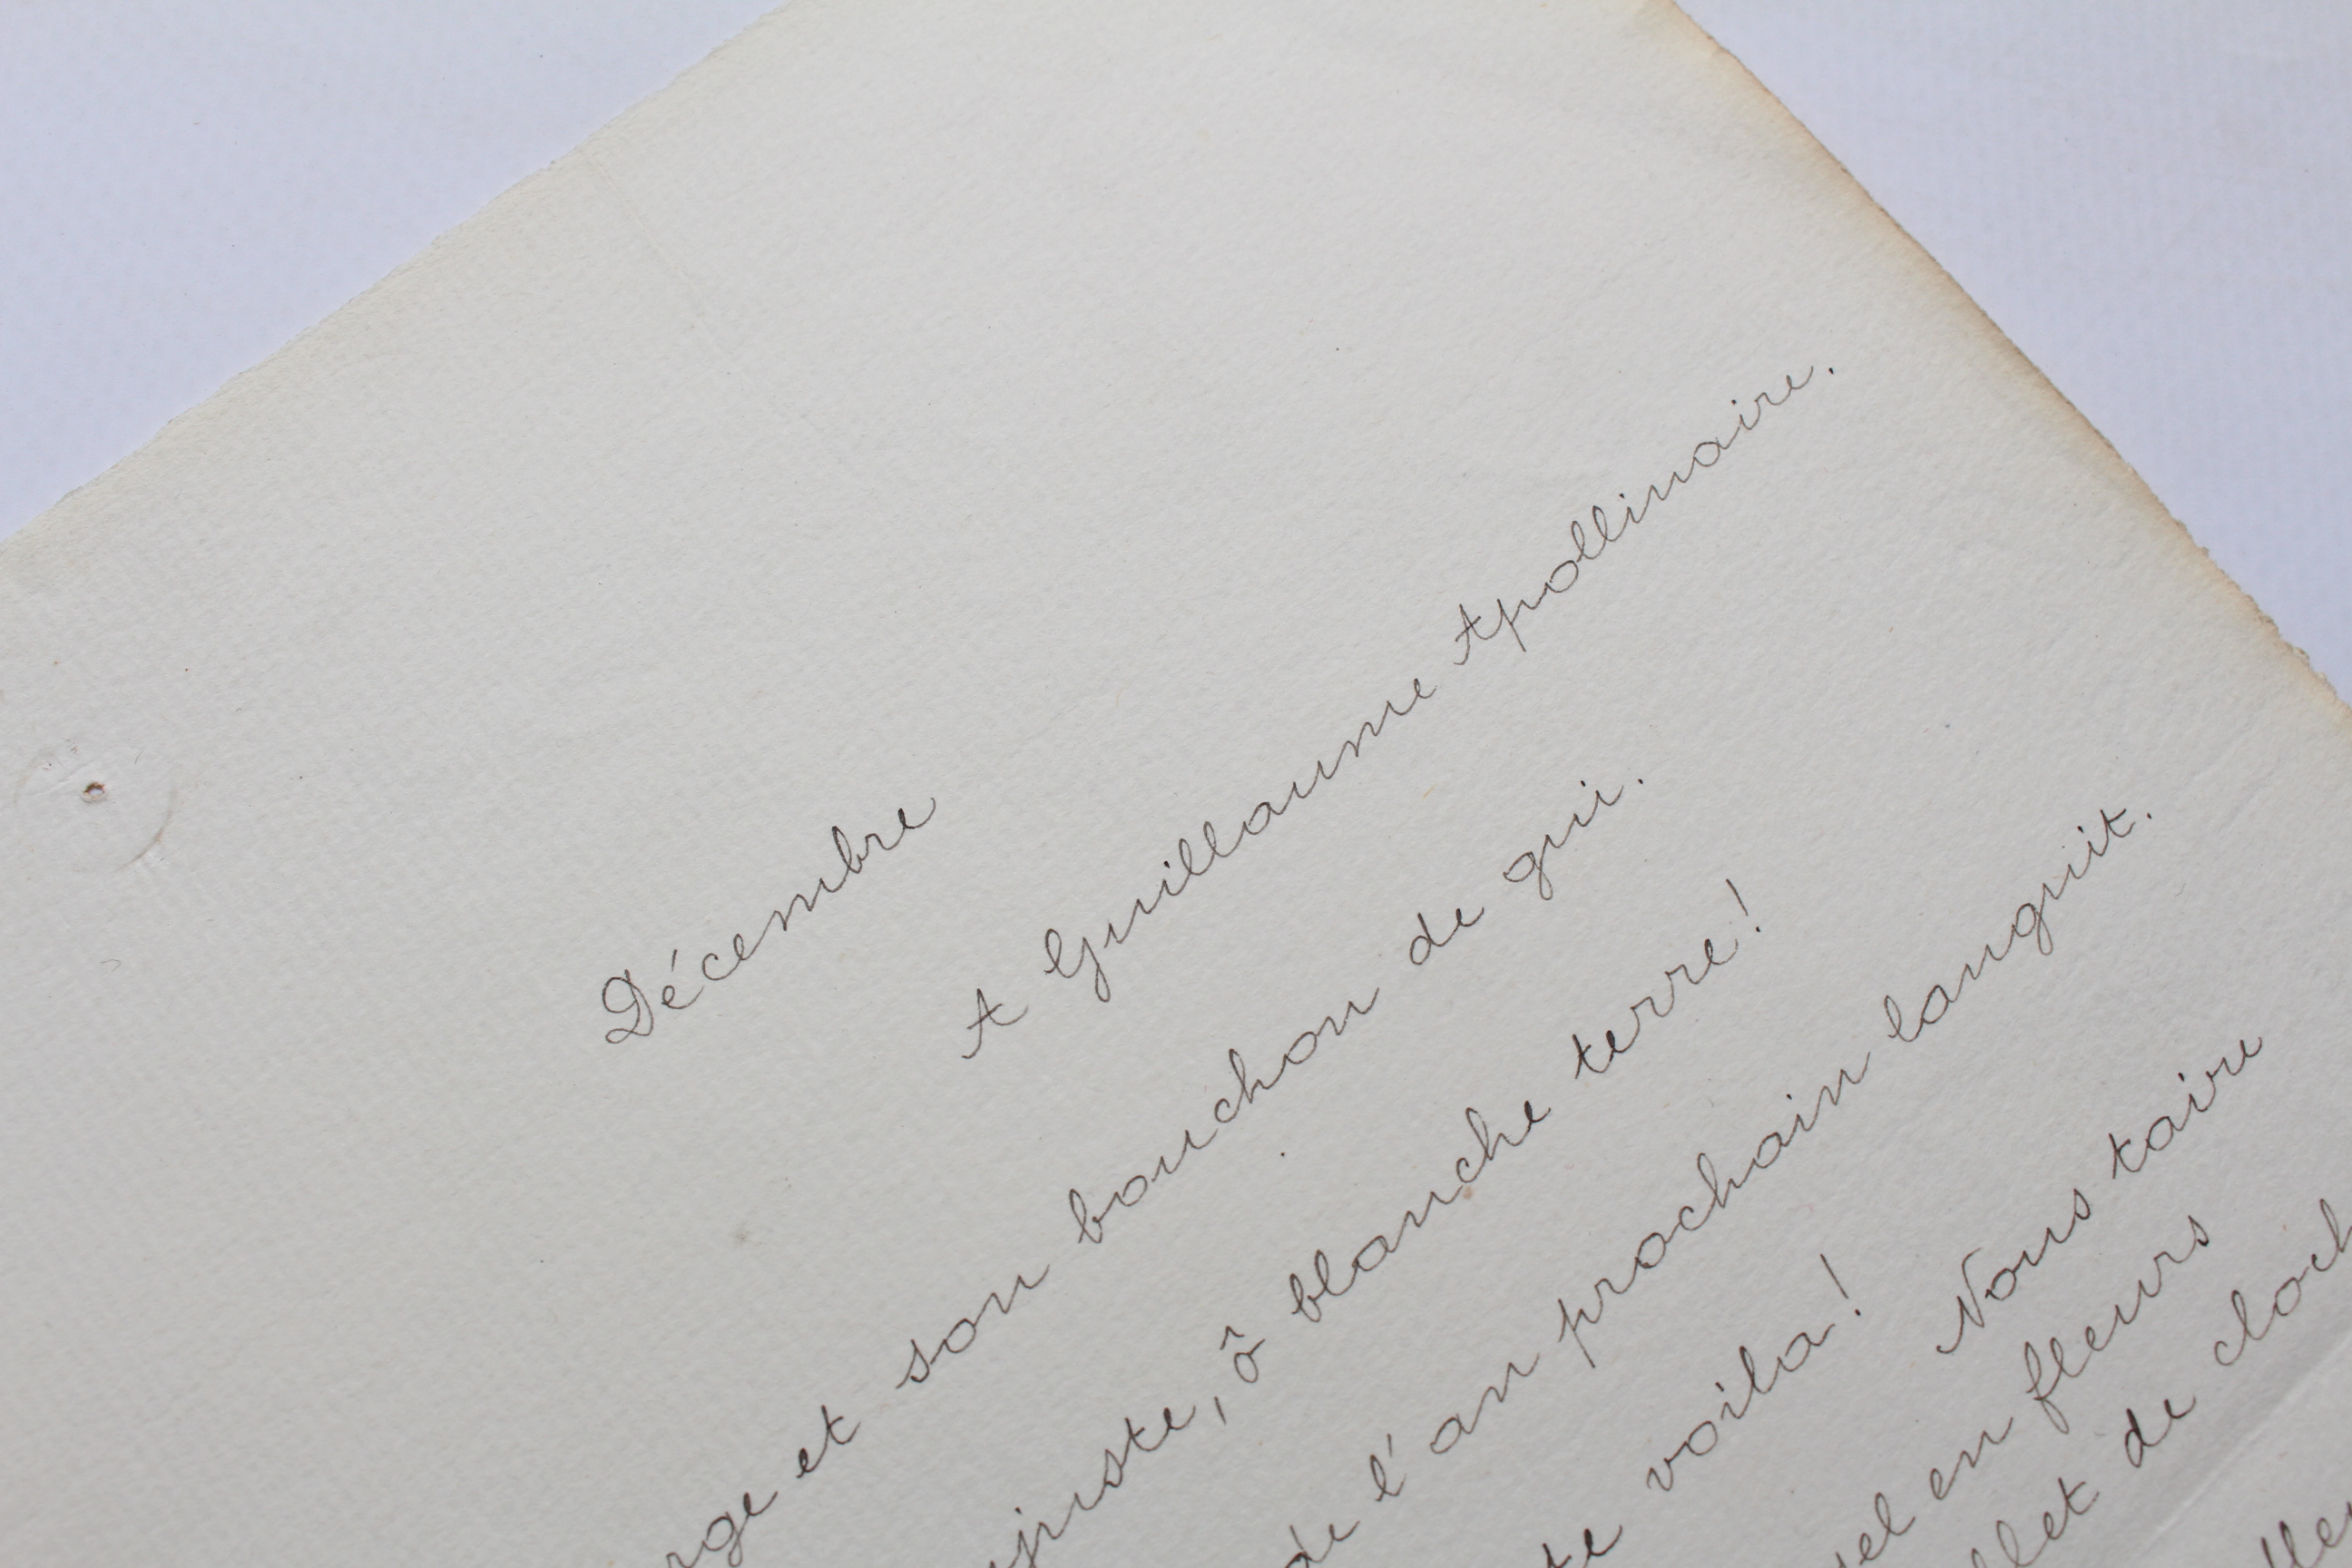 Décembre
A Guillaume Apollinaire.
et son bouchon de gui.
ô blanche terre!
de l'an prochain languit.
voila! Nous taire
en fleurs
de